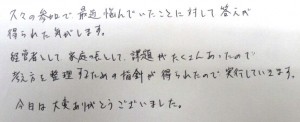 久々の参加で最近悩んでいたことに対して答えが
得られた気がします。
経営者として家庭の長として、課題がたくさんあったので
考え方を整理するための指針が得られたので実行していきます。
今日は大変ありがとうございました。